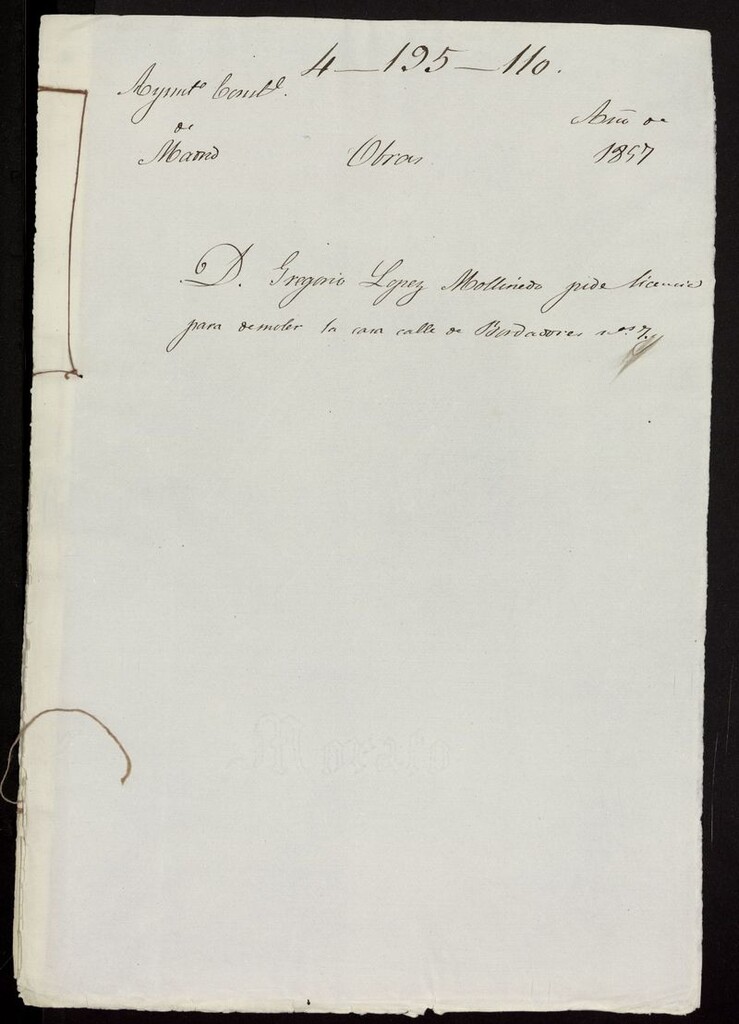 4-195-110.
Ayunto Constl.
de
Madrid
Obras
Año de
1857
D. Gregorio Lopez Mollinedo pide licencia
para demoler la casa calle de Bordadores no. 7.
Morato